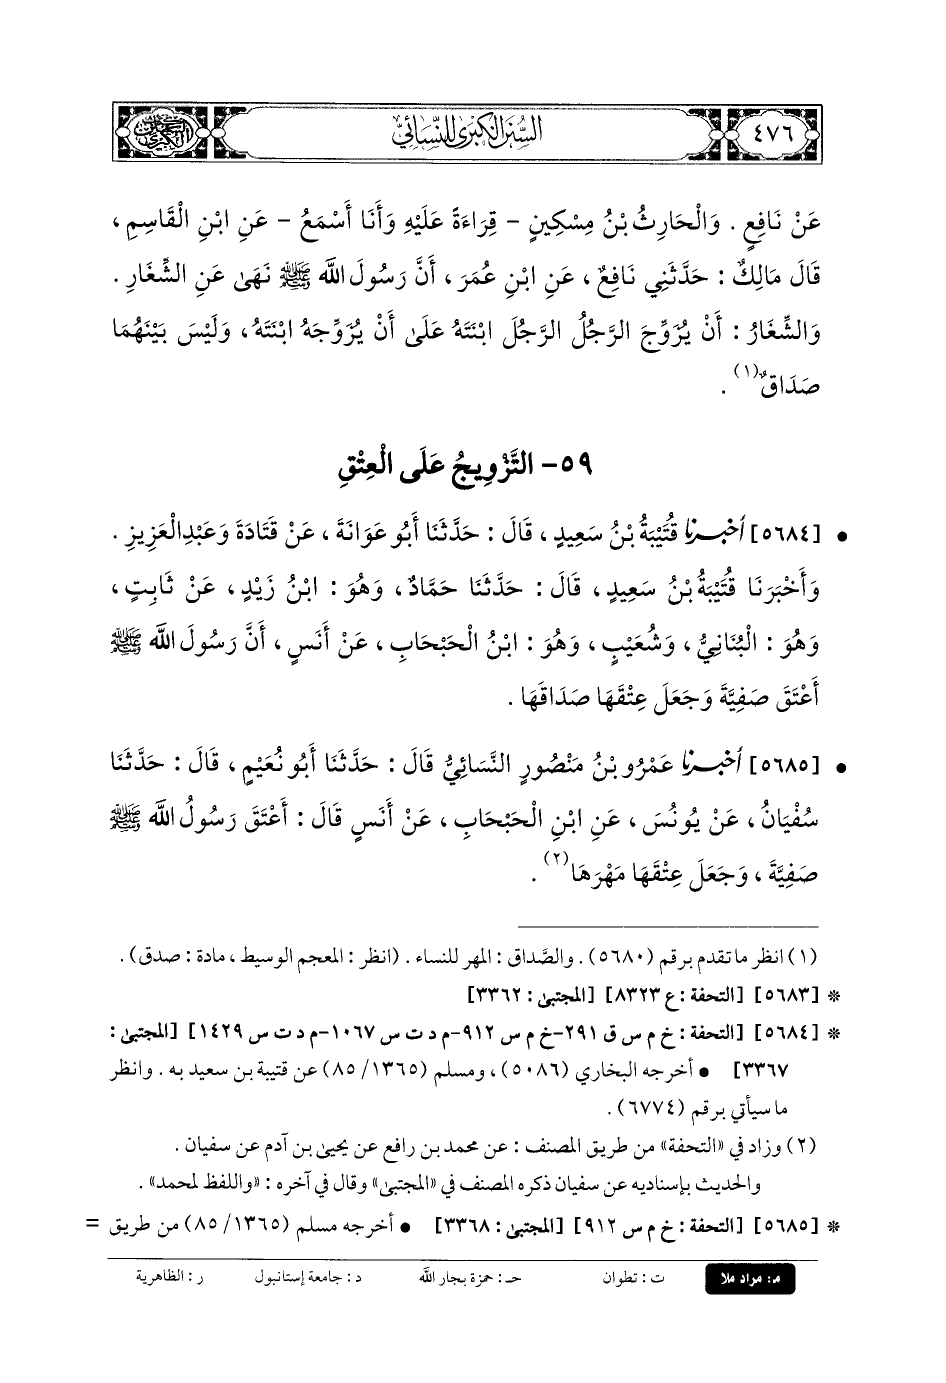 ٤٧٦
السُّنَنُ الكُبْرَى لِلنَّسَائِيِّ
عَنْ نَافِعٍ . وَالْحَارِثُ بْنُ مِسْكِينٍ - قِرَاءَةً عَلَيْهِ وَأَنَا أَسْمَعُ - عَنِ ابْنِ الْقَاسِمِ ،
قَالَ مَالِكٌ : حَدَّثَنِي نَافِعٌ ، عَنِ ابْنِ عُمَرَ ، أَنَّ رَسُولَ اللَّه ﷺ نَهَىٰ عَنِ الشِّغَارِ .
وَالشِّغَارُ : أَنْ يُزَوِّجَ الرَّجُلُ الرَّجُلَ ابْنَتَهُ عَلَىٰ أَنْ يُزَوِّجَهُ ابْنَتَهُ ، وَلَيْسَ بَيْنَهُمَا
صَدَاقٌ(١) .
٥٩- التَّزْوِيجُ عَلَى الْعِتْقِ
• [٥٦٨٤] أَخْبَرَنا قُتَيْبَةُ بْنُ سَعِيدٍ ، قَالَ : حَدَّثَنَا أَبُو عَوَانَةَ ، عَنْ قَتَادَةَ وَعَبْدِالْعَزِيزِ .
وَأَخْبَرَنَا قُتَيْبَةُ بْنُ سَعِيدٍ ، قَالَ : حَدَّثَنَا حَمَّادٌ ، وَهُوَ : ابْنُ زَيْدٍ ، عَنْ ثَابِتٍ ،
وَهُوَ : الْبُنَانِيُّ ، وَشُعَيْبٍ ، وَهُوَ : ابْنُ الْحَبْحَابِ ، عَنْ أَنَسٍ ، أَنَّ رَسُولَ اللَّه ﷺ
أَعْتَقَ صَفِيَّةَ وَجَعَلَ عِتْقَهَا صَدَاقَهَا .
• [٥٦٨٥] أَخْبَرَنا عَمْرُو بْنُ مَنْصُورٍ النَّسَائِيُّ قَالَ : حَدَّثَنَا أَبُو نُعَيْمٍ ، قَالَ : حَدَّثَنَا
سُفْيَانُ ، عَنْ يُونُسَ ، عَنِ ابْنِ الْحَبْحَابِ ، عَنْ أَنَسٍ قَالَ : أَعْتَقَ رَسُولُ اللَّه ﷺ
صَفِيَّةَ ، وَجَعَلَ عِتْقَهَا مَهْرَهَا(٢) .
(١) انظر ما تقدم برقم (٥٦٨٠) . والصَّداق : المهر للنساء . (انظر : المعجم الوسيط ، مادة : صدق) .
* [٥٦٨٣] [التحفة : ع ٨٣٢٣] [المجتبىٰ : ٣٣٦٢]
* [٥٦٨٤] [التحفة : خ م س ق ٢٩١-خ م س ٩١٢-م د ت س ١٠٦٧-م د ت س ١٤٢٩] [المجتبىٰ :
٣٣٦٧] • أخرجه البخاري (٥٠٨٦) ، ومسلم (٨٥/١٣٦٥) عن قتيبة بن سعيد به . وانظر
ما سيأتي برقم (٦٧٧٤) .
(٢) وزاد في «التحفة» من طريق المصنف : عن محمد بن رافع عن يحيىٰ بن آدم عن سفيان .
والحديث بإسناديه عن سفيان ذكره المصنف في «المجتبىٰ» وقال في آخره : «واللفظ لمحمد» .
* [٥٦٨٥] [التحفة : خ م س ٩١٢] [المجتبىٰ : ٣٣٦٨] • أخرجه مسلم (٨٥/١٣٦٥) من طريق =
م: مراد ملا ت : تطوان حـ : حمزة بجار اللَّه د : جامعة إستانبول ر : الظاهرية